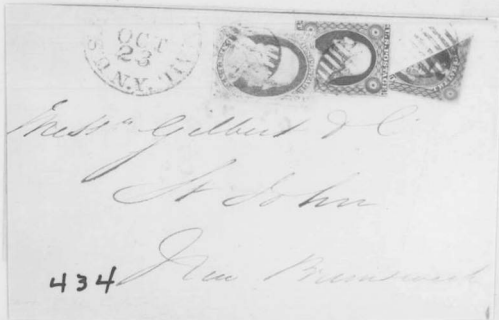 OCT
23
N.Y.
Mess^rs Gilbert & C^o
St John
New Brunswick
434